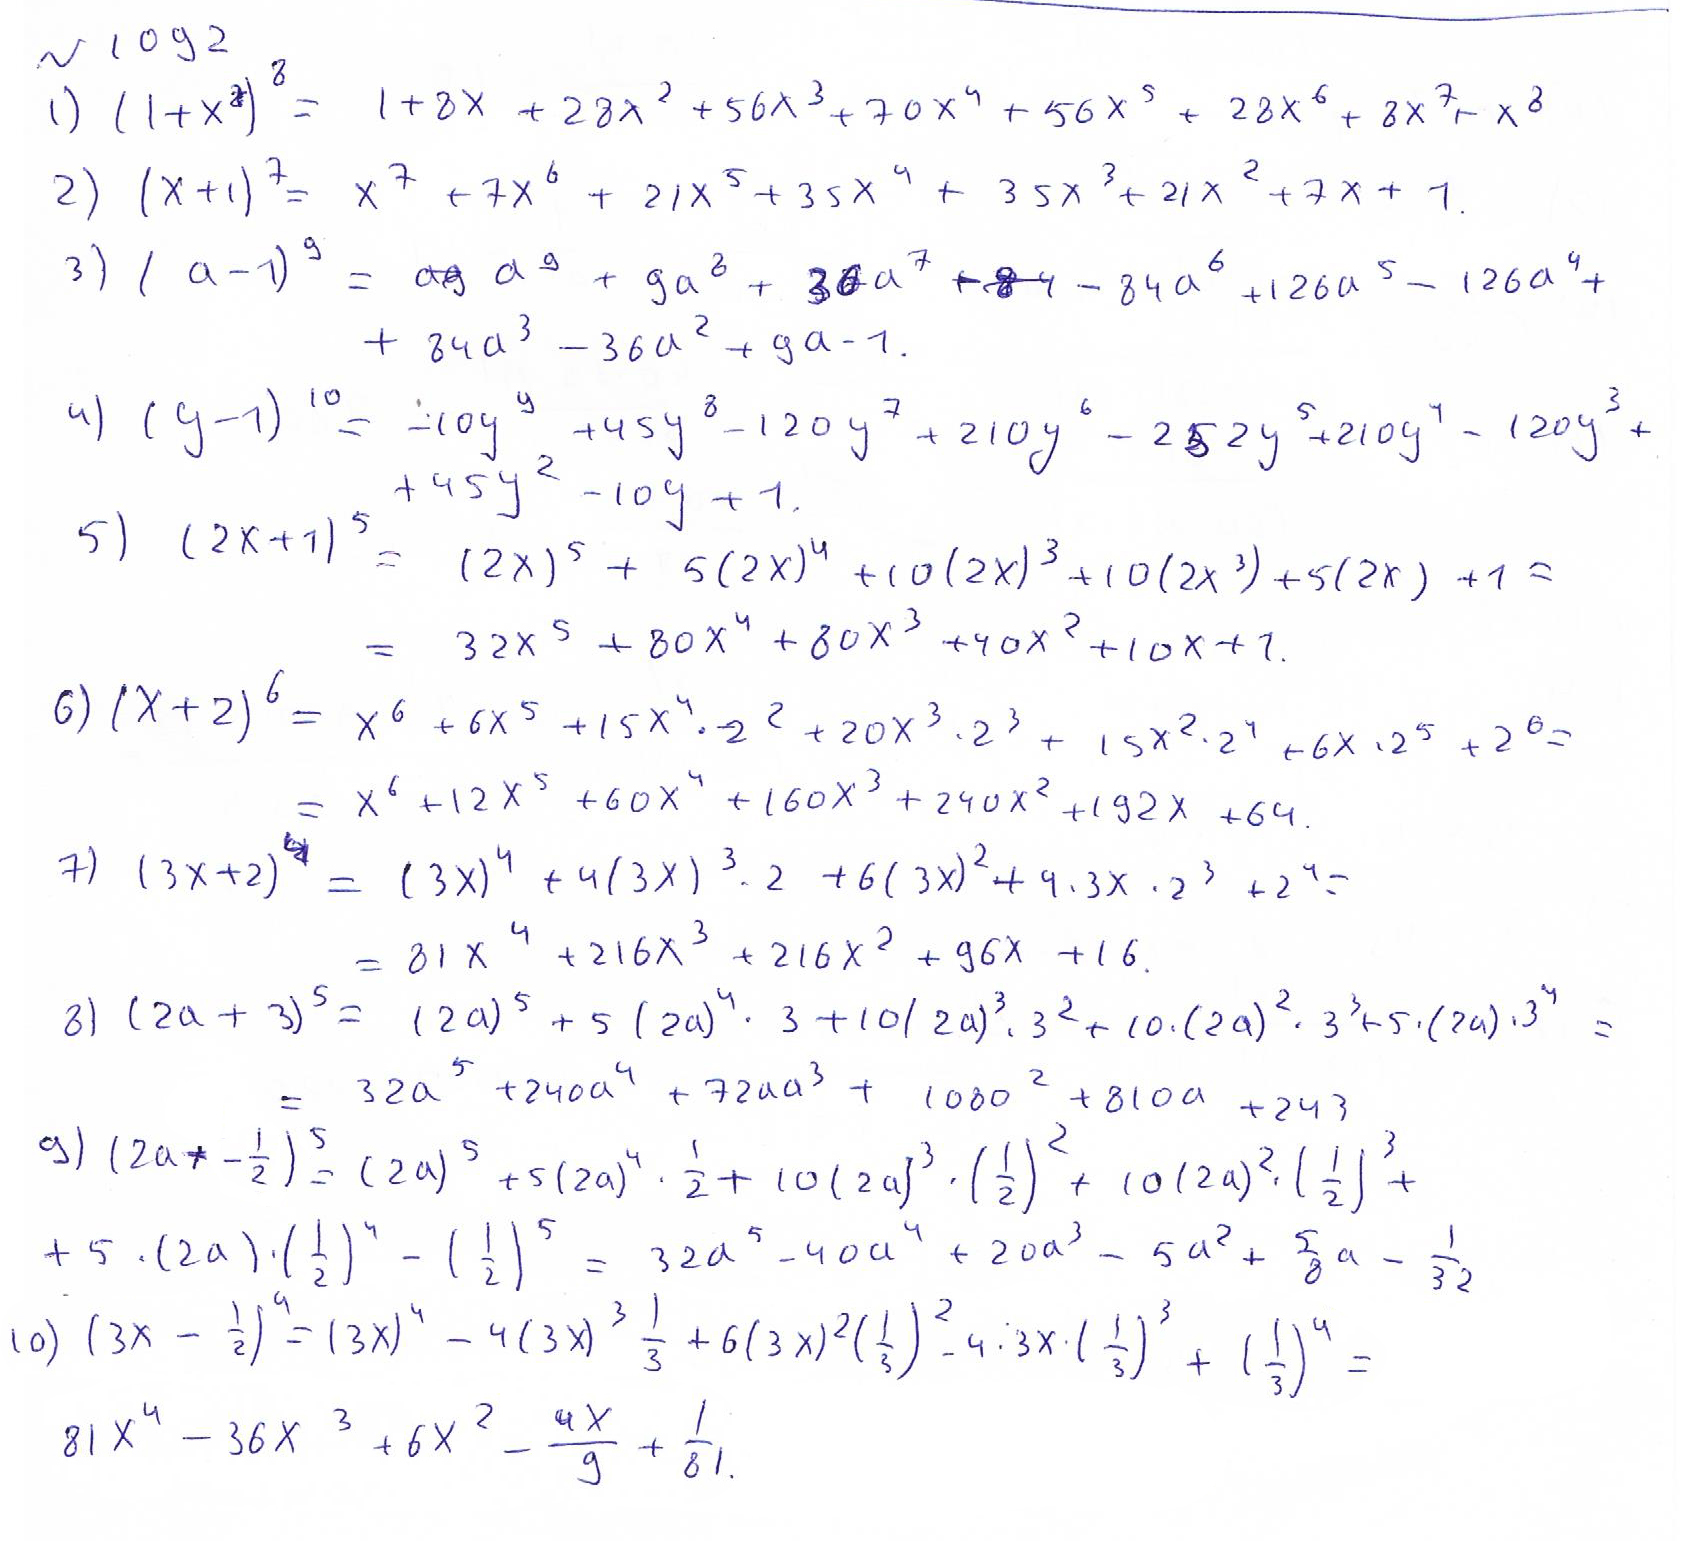 № 1092
1) (1+x)^8 = 1+8x + 28x^2 + 56x^3 + 70x^4 + 56x^5 + 28x^6 + 8x^7 + x^8
2) (x+1)^7 = x^7 + 7x^6 + 21x^5 + 35x^4 + 35x^3 + 21x^2 + 7x + 1.
3) (a-1)^9 = a^9 + 9a^8 + 36a^7 - 84a^6 + 126a^5 - 126a^4 +
+ 84a^3 - 36a^2 + 9a - 1.
4) (y-1)^10 = -10y^9 + 45y^8 - 120y^7 + 210y^6 - 252y^5 + 210y^4 - 120y^3 +
+ 45y^2 - 10y + 1.
5) (2x+1)^5 = (2x)^5 + 5(2x)^4 + 10(2x)^3 + 10(2x^3) + 5(2x) + 1 =
= 32x^5 + 80x^4 + 80x^3 + 40x^2 + 10x + 1.
6) (x+2)^6 = x^6 + 6x^5 + 15x^4 · 2^2 + 20x^3 · 2^3 + 15x^2 · 2^4 + 6x · 2^5 + 2^6 =
= x^6 + 12x^5 + 60x^4 + 160x^3 + 240x^2 + 192x + 64.
7) (3x+2)^4 = (3x)^4 + 4(3x)^3 · 2 + 6(3x)^2 + 4 · 3x · 2^3 + 2^4 =
= 81x^4 + 216x^3 + 216x^2 + 96x + 16.
8) (2a + 3)^5 = (2a)^5 + 5(2a)^4 · 3 + 10(2a)^3 · 3^2 + 10 · (2a)^2 · 3^3 + 5 · (2a) · 3^4 =
= 32a^5 + 240a^4 + 720a^3 + 1080^2 + 810a + 243
9) (2a - 1/2)^5 = (2a)^5 + 5(2a)^4 · 1/2 + 10(2a)^3 · (1/2)^2 + 10(2a)^2 · (1/2)^3 +
+ 5 · (2a) · (1/2)^4 - (1/2)^5 = 32a^5 - 40a^4 + 20a^3 - 5a^2 + 5/8 a - 1/32
10) (3x - 1/2)^4 = (3x)^4 - 4(3x)^3 1/3 + 6(3x)^2 (1/3)^2 - 4 · 3x · (1/3)^3 + (1/3)^4 =
81x^4 - 36x^3 + 6x^2 - 4x/9 + 1/81.